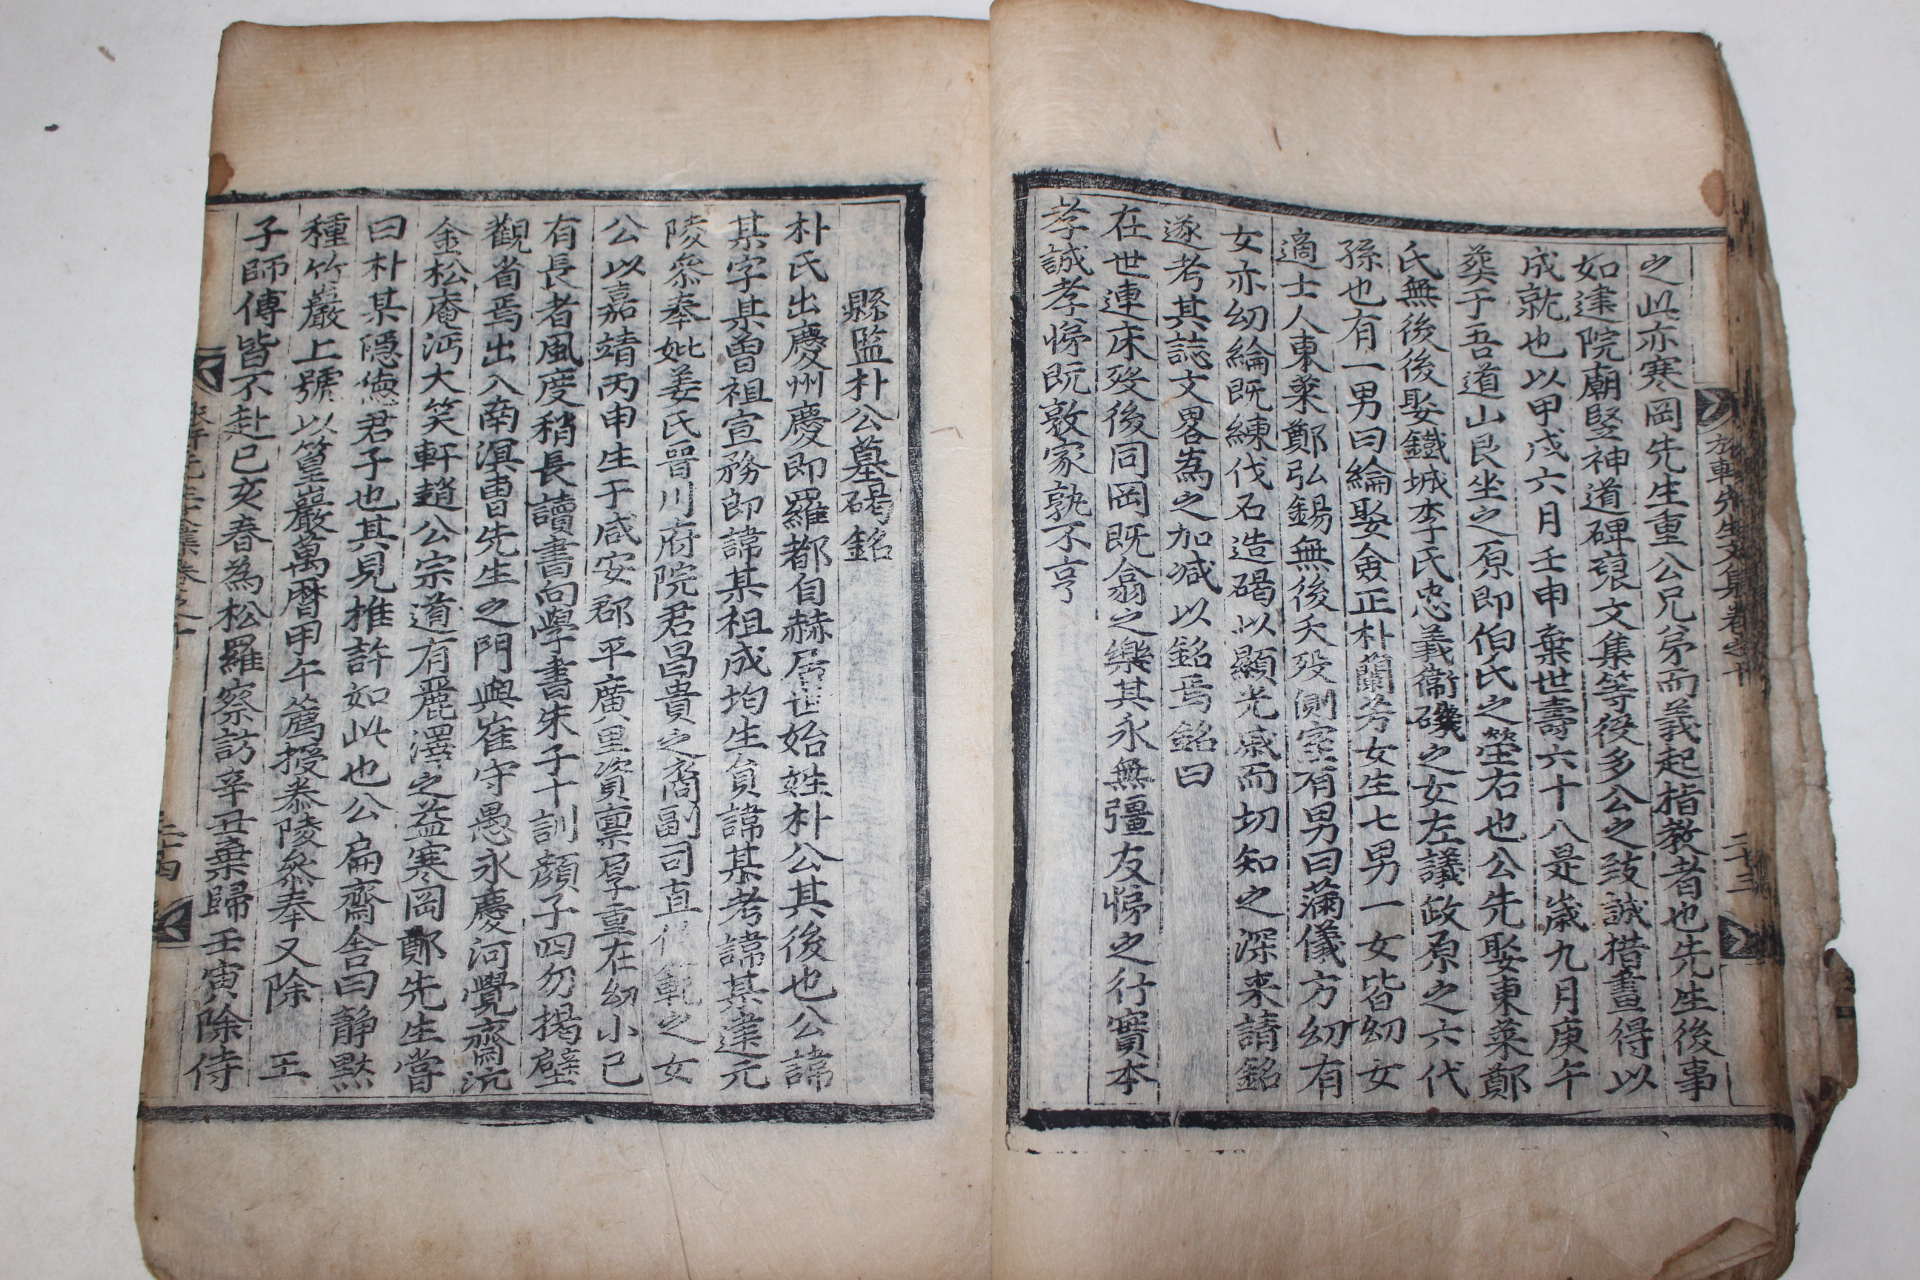 之此亦寒岡先生重公兄弟而義起指教者也先生後事
如建院廟竪神道碑裒文集等役多公之致誠措畫得以
成就也以甲戌六月壬申棄世壽六十八是歲九月庚午
葬于吾道山艮坐之原即伯氏之塋右也公先娶東萊鄭
氏無後後娶鐵城李氏忠義衛磯之女左議政原之六代
孫也有一男曰綸娶僉正朴蘭芳女生七男一女皆幼女
適士人東萊鄭弘錫無後夭歿側室有男曰㒼儀方幼有
女亦幼綸既練伐石造碣以顯光戚而切知之深來請銘
遂考其誌文畧為之加减以銘焉銘曰
在世連床歿後同岡既翕之樂其永無彊友悌之行實本
孝誠孝悌既敦家孰不亨
先生文集卷之十
二十三
縣監朴公墓碣銘
朴氏出慶州慶即羅都自赫居世始姓朴公其後也公諱
某字某曾祖宣務郎諱某祖成均生員諱某考諱某達元
陵叅奉妣姜氏晉川府院君昌貴之裔副司直 範之女
公以嘉靖丙申生于咸安郡平廣里資稟厚重在幼小已
有長者風度稍長讀書向學書朱子十訓顔子四勿揭壁
觀省焉出入南溟曺先生之門與崔守愚永慶河覺齋沆
金松庵沔大笑軒趙公宗道有麗澤之益寒岡鄭先生嘗
曰朴某隱德君子也其見推許如此也公扁齋舍曰靜默
種竹巖上號以篁巖萬曆甲午薦授泰陵叅奉又除 王
子師傅皆不赴己亥春為松羅察訪辛丑棄歸壬寅除侍